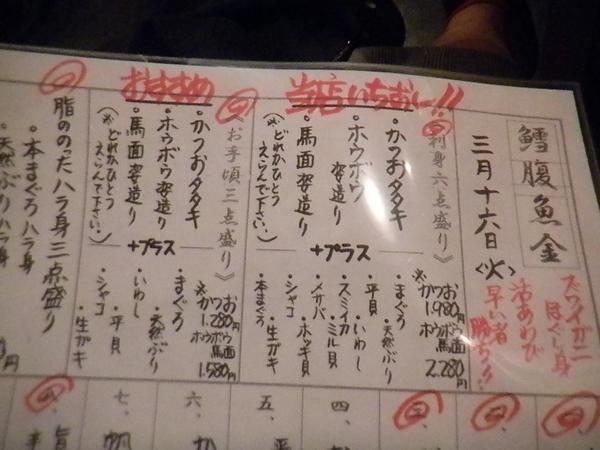 鱈腹魚金
三月十六日〈火〉
ズワイガニ
ほぐし身
活あわび
早い者
勝ち!!
当店いちおし!!
刺身六点盛り
・かつおタタキ
・ホウボウ姿造り
・馬面姿造り
(※どれかひとつえらんで下さい。)
+プラス
・まぐろ
・天然ぶり
・平貝
・いわし
・スミイカ
・ミル貝
・メサバ
・ホッキ貝
・シャコ
・生ガキ
・本まぐろ
おすすめ
《お手頃三点盛り》
・かつおタタキ
・ホウボウ姿造り
・馬面姿造り
(※どれかひとつえらんで下さい。)
+プラス
・まぐろ
・天然ぶり
・いわし
・平貝
・シャコ
・生ガキ
1.580円
2.280円
脂ののったハラ身三点盛り
・本まぐろハラ身
・天然ぶりハラ身
四、
五、
六、
七、